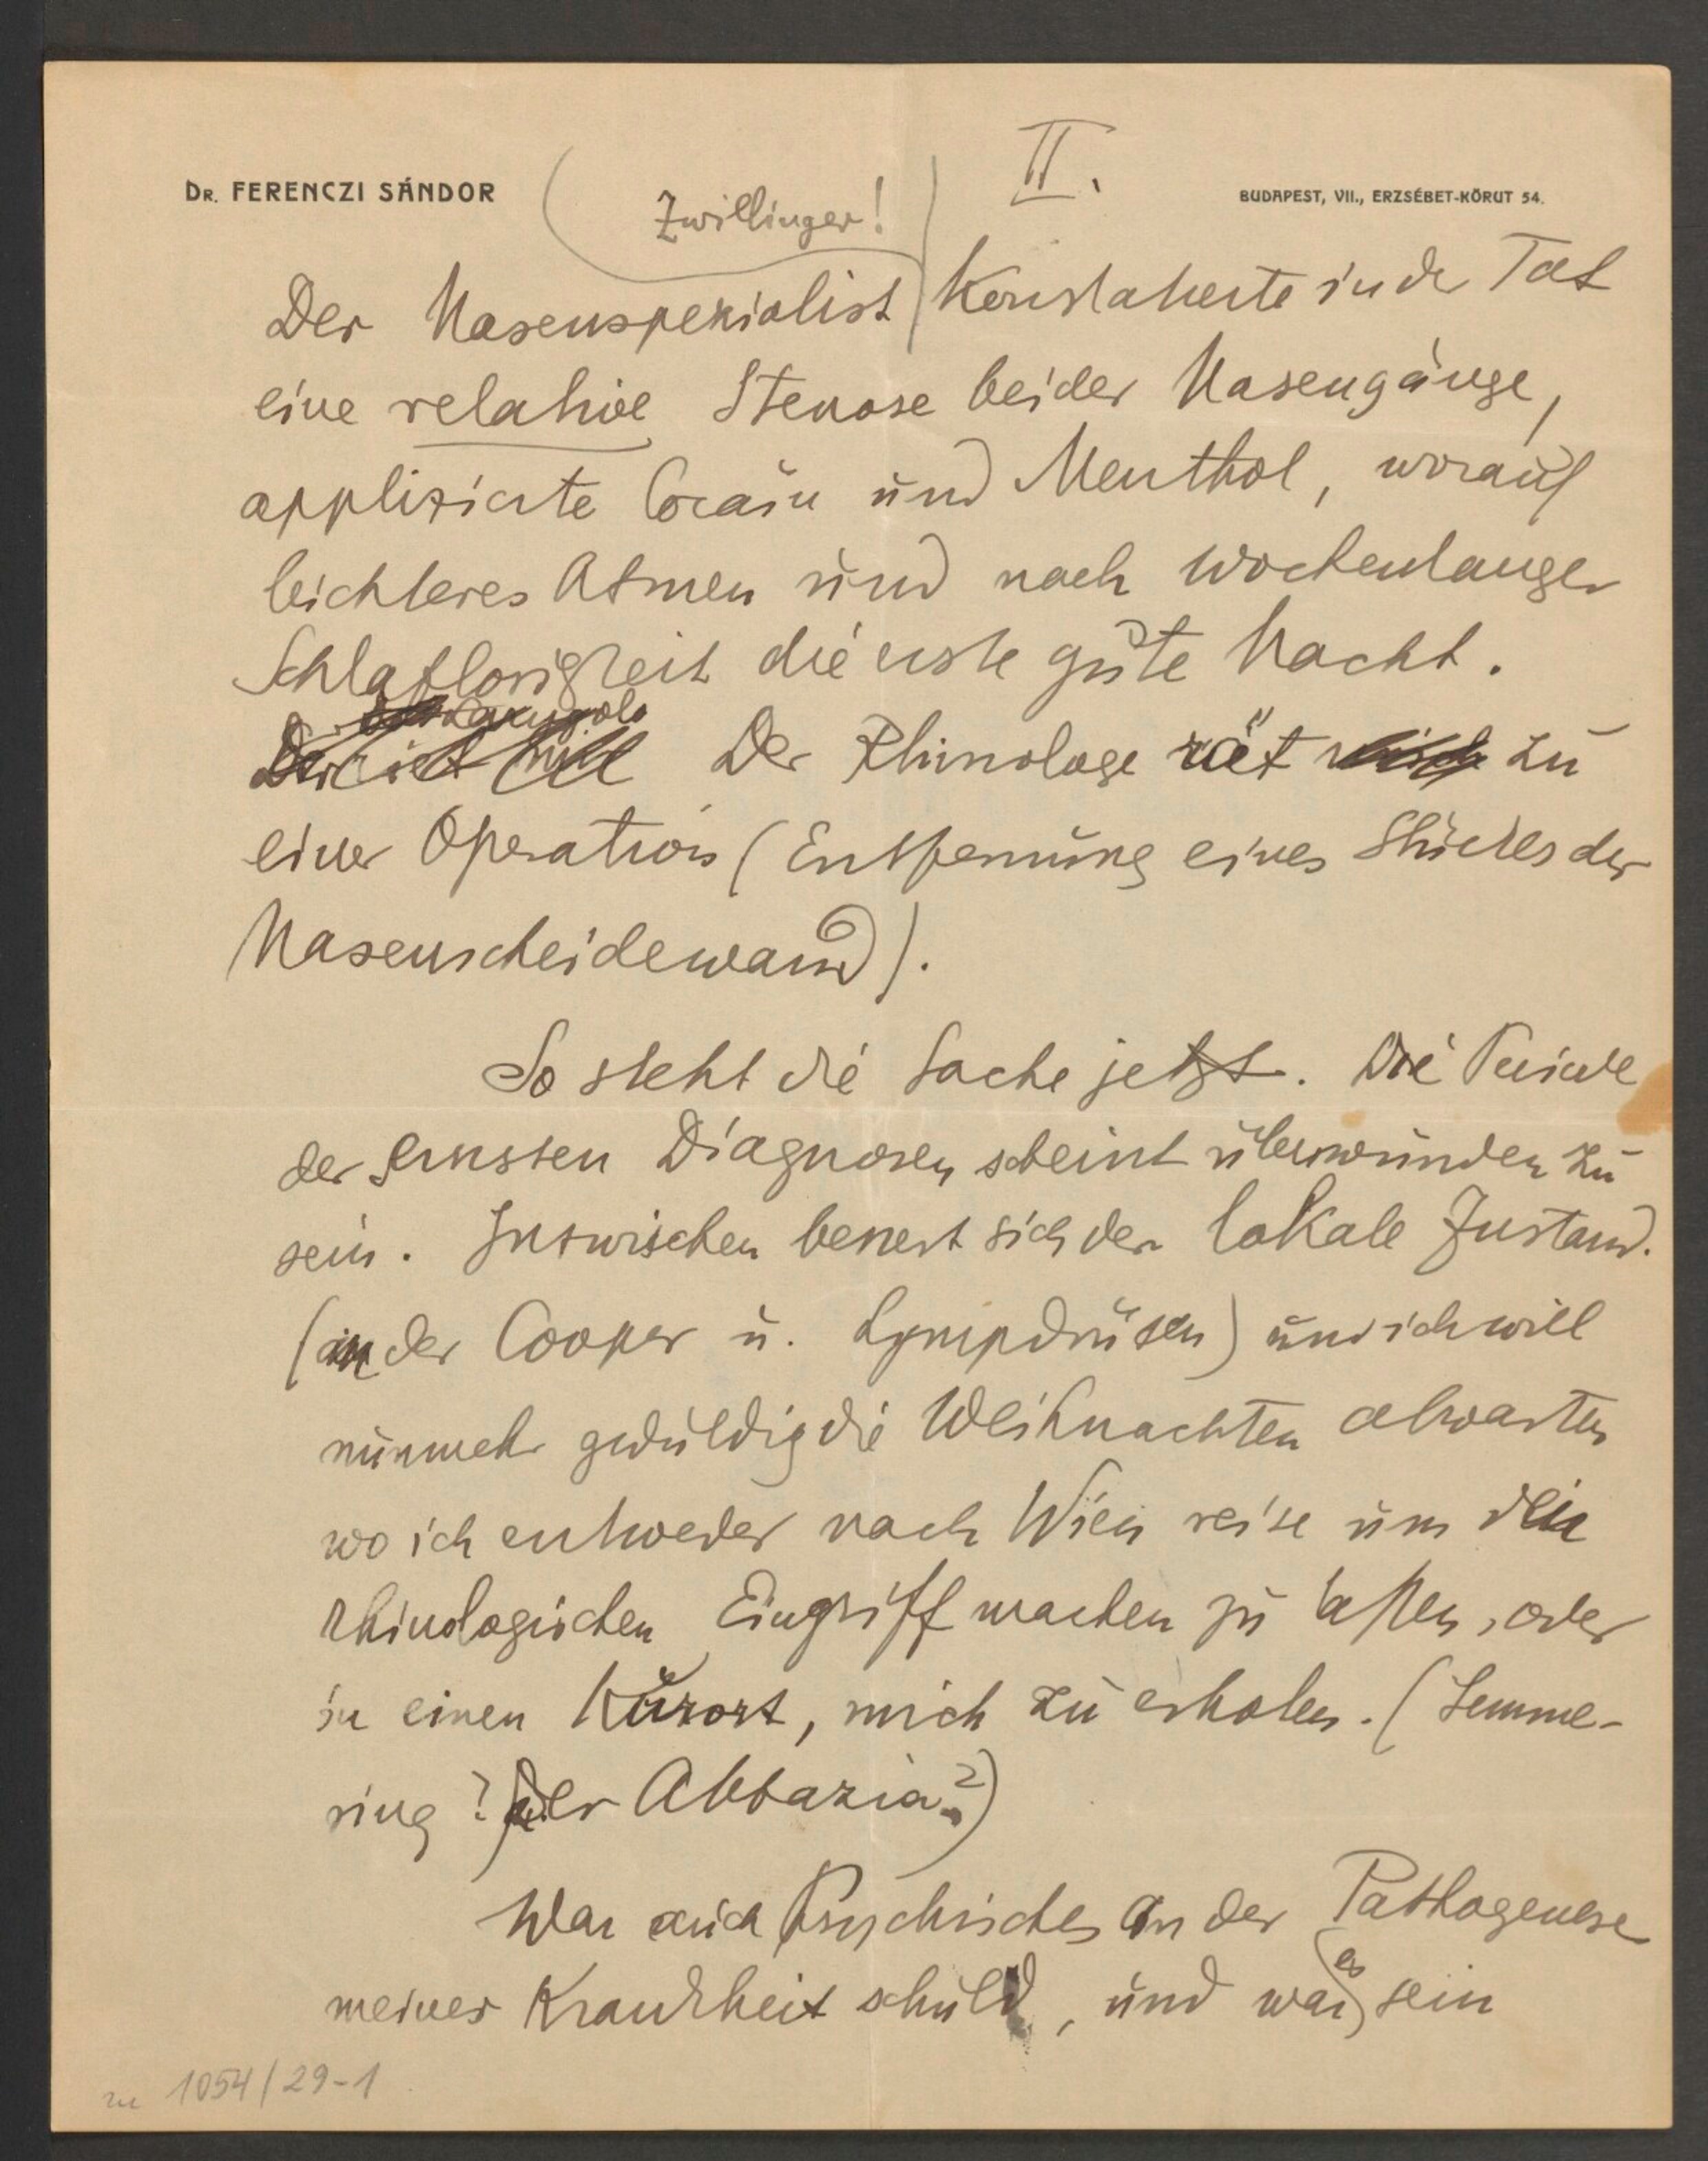 II.
DR. FERENCZI SÁNDOR
BUDAPEST, VII., ERZSÉBET-KÖRUT 54.
(Zwillinger!)
Der Nasenspezialist konstatierte in der Tat
eine relative Stenose beider Nasengänge,
applizierte Cocain und Menthol, worauf
leichteres Atmen und nach wochenlanger
Schlaflosigkeit die erste gute Nacht.
Der Rhinologe rät zu
einer Operation (Entfernung eines Stückes der
Nasenscheidewand).
So steht die Sache jetzt. Die Periode
der ernsten Diagnosen scheint überwunden zu
sein. Inzwischen bessert sich der lokale Zustand.
(in der Cooper u. Lympdrüsen) und ich will
nunmehr geduldig die Weihnachten abwarten
wo ich entweder nach Wien reise um den
rhinologischen Eingriff machen zu laßen, oder
in einen Kurort, mich zu erholen. (Semme-
ring? oder Abbazia?)
War auch Psychisches an der Pathogenese
meiner Krankheit schuld, und was es sein
zu 1054/29-1